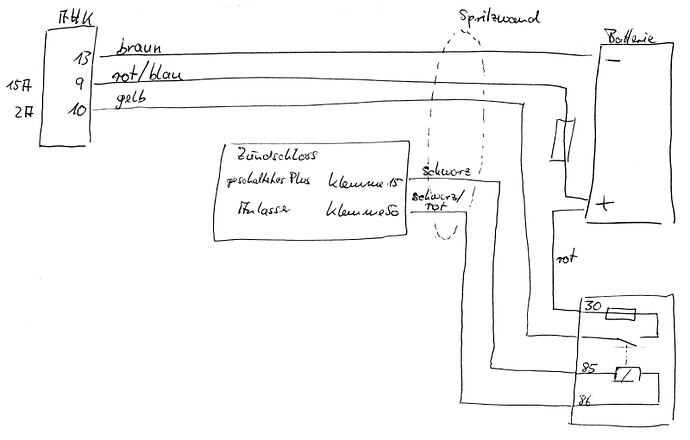 AHK
Spritzwand
Batterie
13 braun
–
15A 9 rot/blau
2A 10 gelb
Zündschloss
geschalteter Plus Klemme 15 schwarz
Anlasser Klemme 50 schwarz/
rot
+
rot
30
85
86